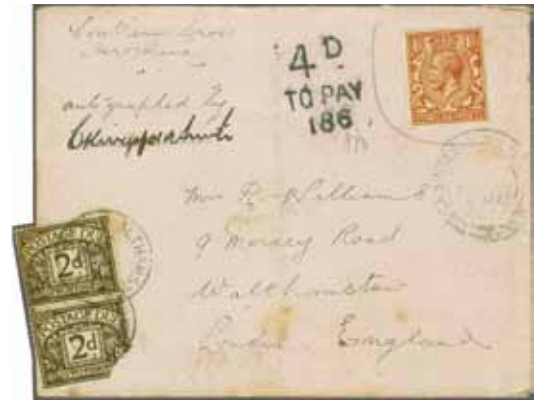 Southern Cross
Aeroplane
autographed by
4D
TO PAY
186
Mrs R. Williams
9 Mersey Road
Walthamstow
London England
POSTAGE DUE
2d
POSTAGE DUE
2d